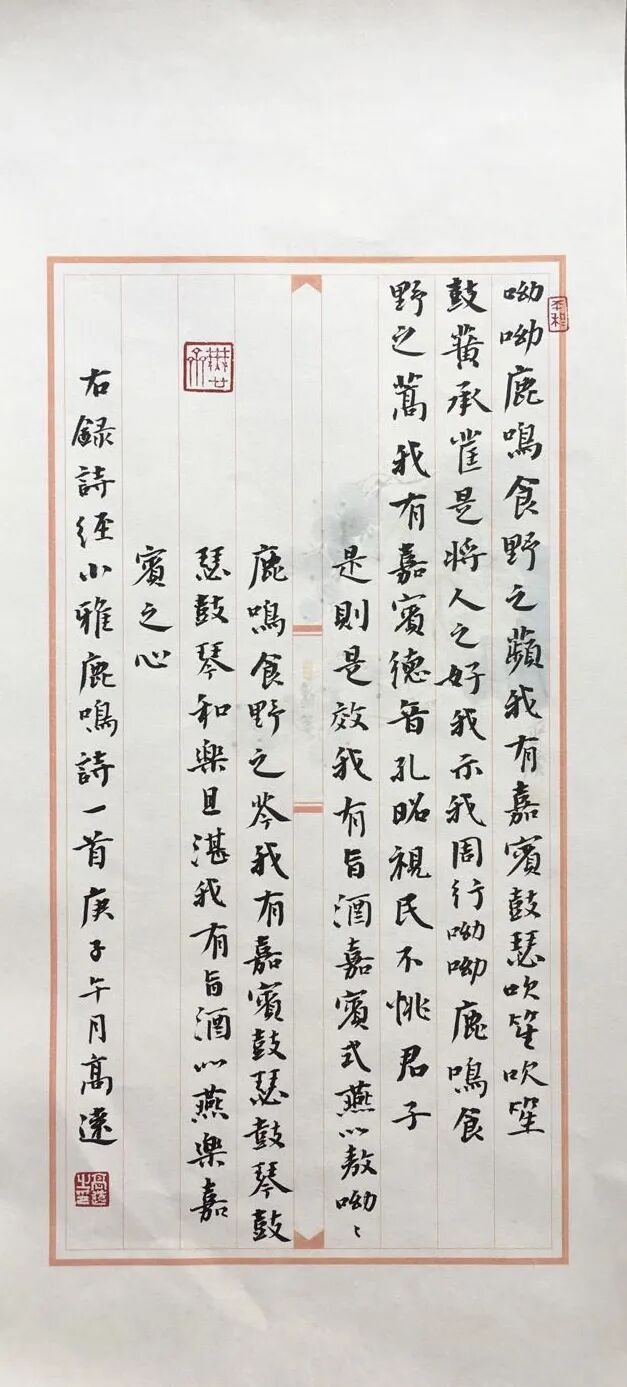 呦呦鹿鳴食野之蘋我有嘉賓鼓瑟吹笙吹笙
鼓簧承筐是將人之好我示我周行呦呦鹿鳴食
野之蒿我有嘉賓德音孔昭視民不恌君子
是則是效我有旨酒嘉賓式燕以敖呦呦〻
鹿鳴食野之芩我有嘉賓鼓瑟鼓琴鼓
瑟鼓琴和樂且湛我有旨酒以燕樂嘉
賓之心
右録詩經小雅鹿鳴詩一首庚子午月高遠
高遠之印